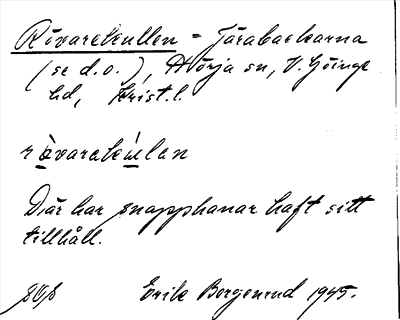 Rövarekullen = Tärabackarna
(se d.o.), Hörja sn, V. Göinge
hd, Krist. l.
rövarekulan
Där har snapphanar haft sitt
tillhåll.
Erik Borgenrud 1945.